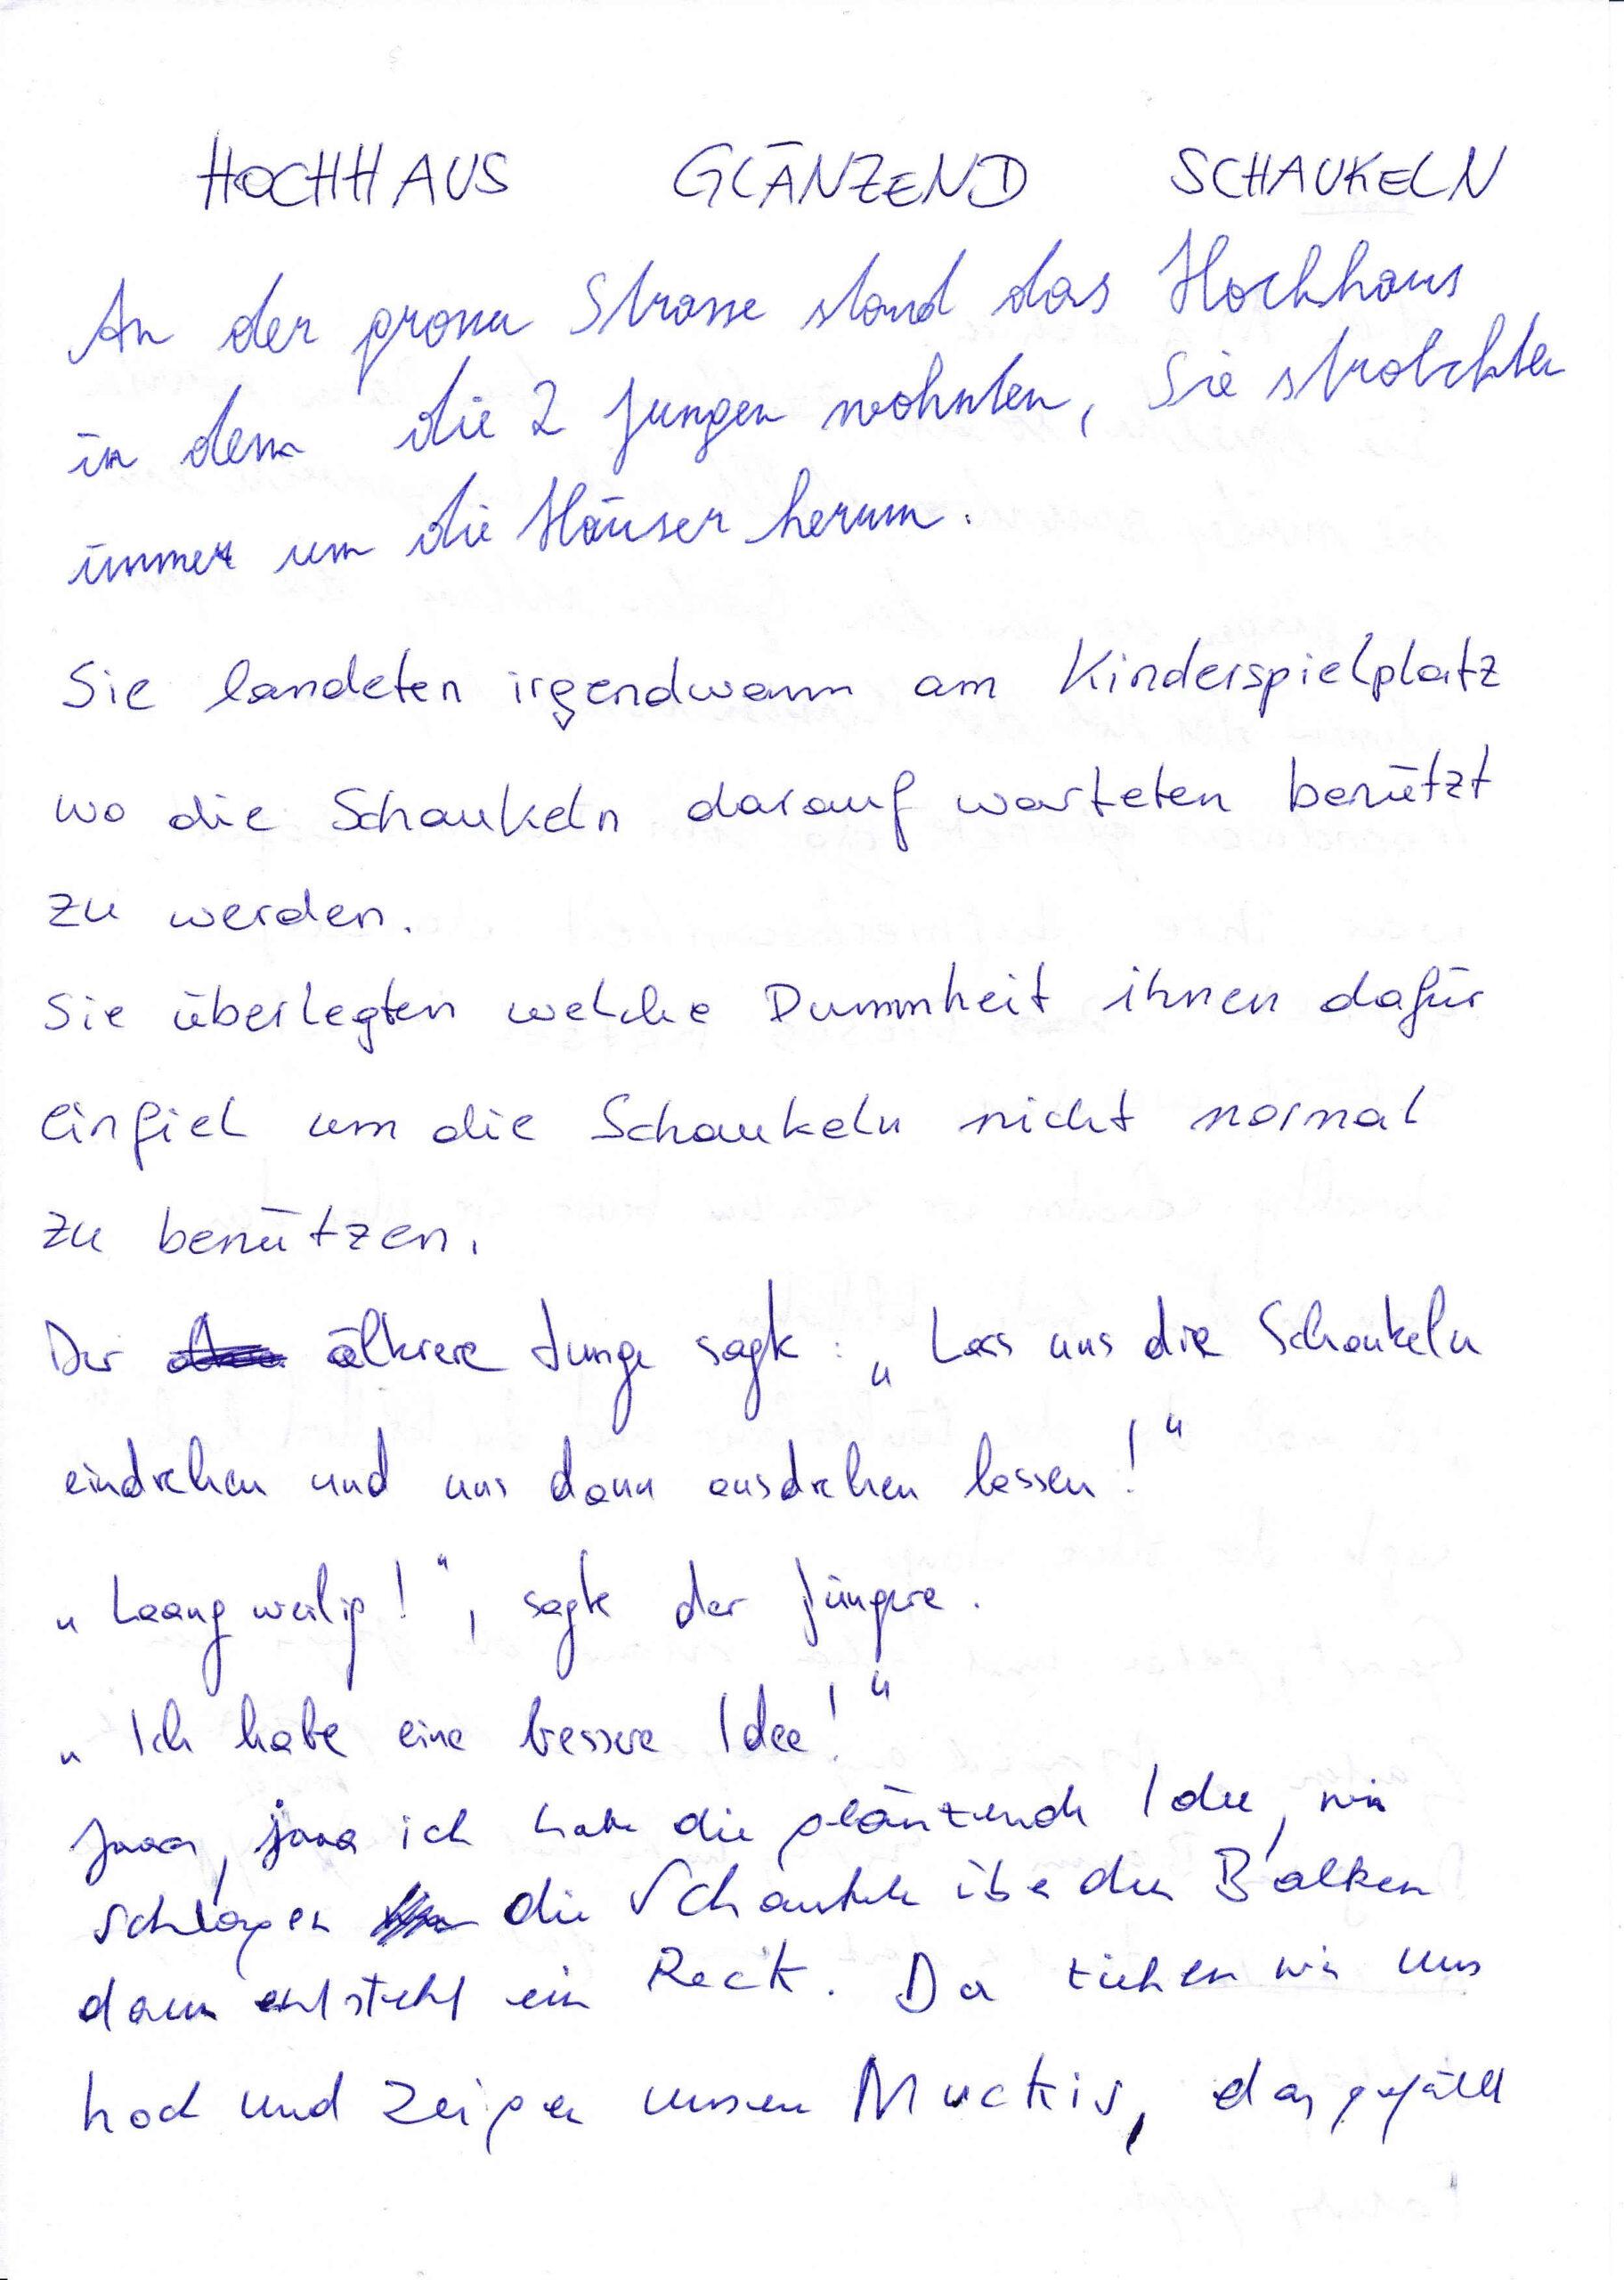 HOCHHAUS GLÄNZEND SCHAUKELN
An der grossen Strasse stand das Hochhaus
in dem die 2 Jungen wohnten, Sie strolchten
immer um die Häuser herum.
Sie landeten irgendwann am Kinderspielplatz
wo die Schaukeln darauf warteten benützt
zu werden.
Sie überlegten welche Dummheit ihnen dafür
einfiel um die Schaukeln nicht normal
zu benützen.
Der ältere Junge sagte: „Lass uns die Schaukeln
eindrehen und uns dann ausdrehen lassen!“
„Laangweilig!“, sagte der Jüngere.
„Ich habe eine bessere Idee!“
Jaaa, jaaa ich habe die glänzende Idee, wir
schlagen die Schaukeln über den Balken
dann entsteht ein Reck. Da ziehen wir uns
hoch und zeigen unsere Muckis, das gefällt